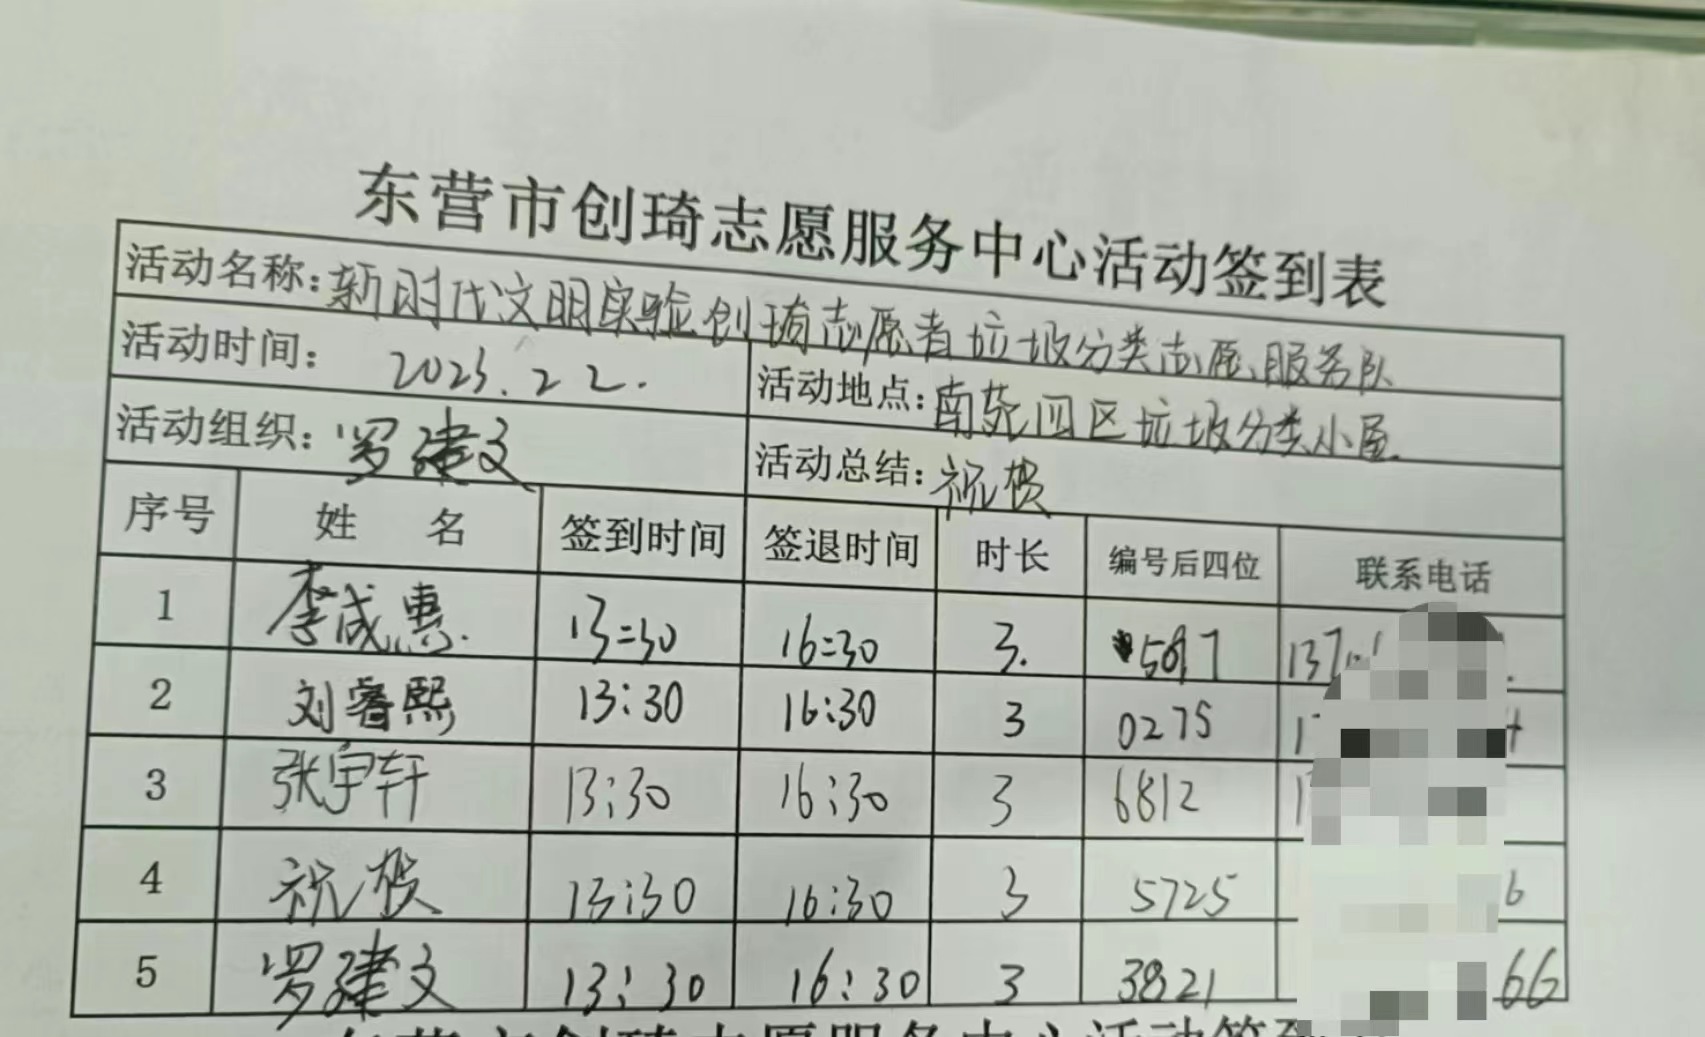 东营市创琦志愿服务中心活动签到表
活动名称:新时代文明实验创琦志愿者垃圾分类志愿服务队
活动时间: 2023.2 2. 活动地点:南苑四区垃圾分类小屋.
活动组织: 罗建文 活动总结:祝贺
序号 姓 名 签到时间 签退时间 时长 编号后四位 联系电话
1 李成惠. 13:30 16:30 3. 137
2 刘睿熙 13:30 16:30 3 0275 1
3 张宇轩 13:30 16:30 3 6812 1
4 祝贺 13:30 16:30 3 5725 6
5 罗建文 13:30 16:30 3 3821 66
东营市创琦志愿服务中心活动签到